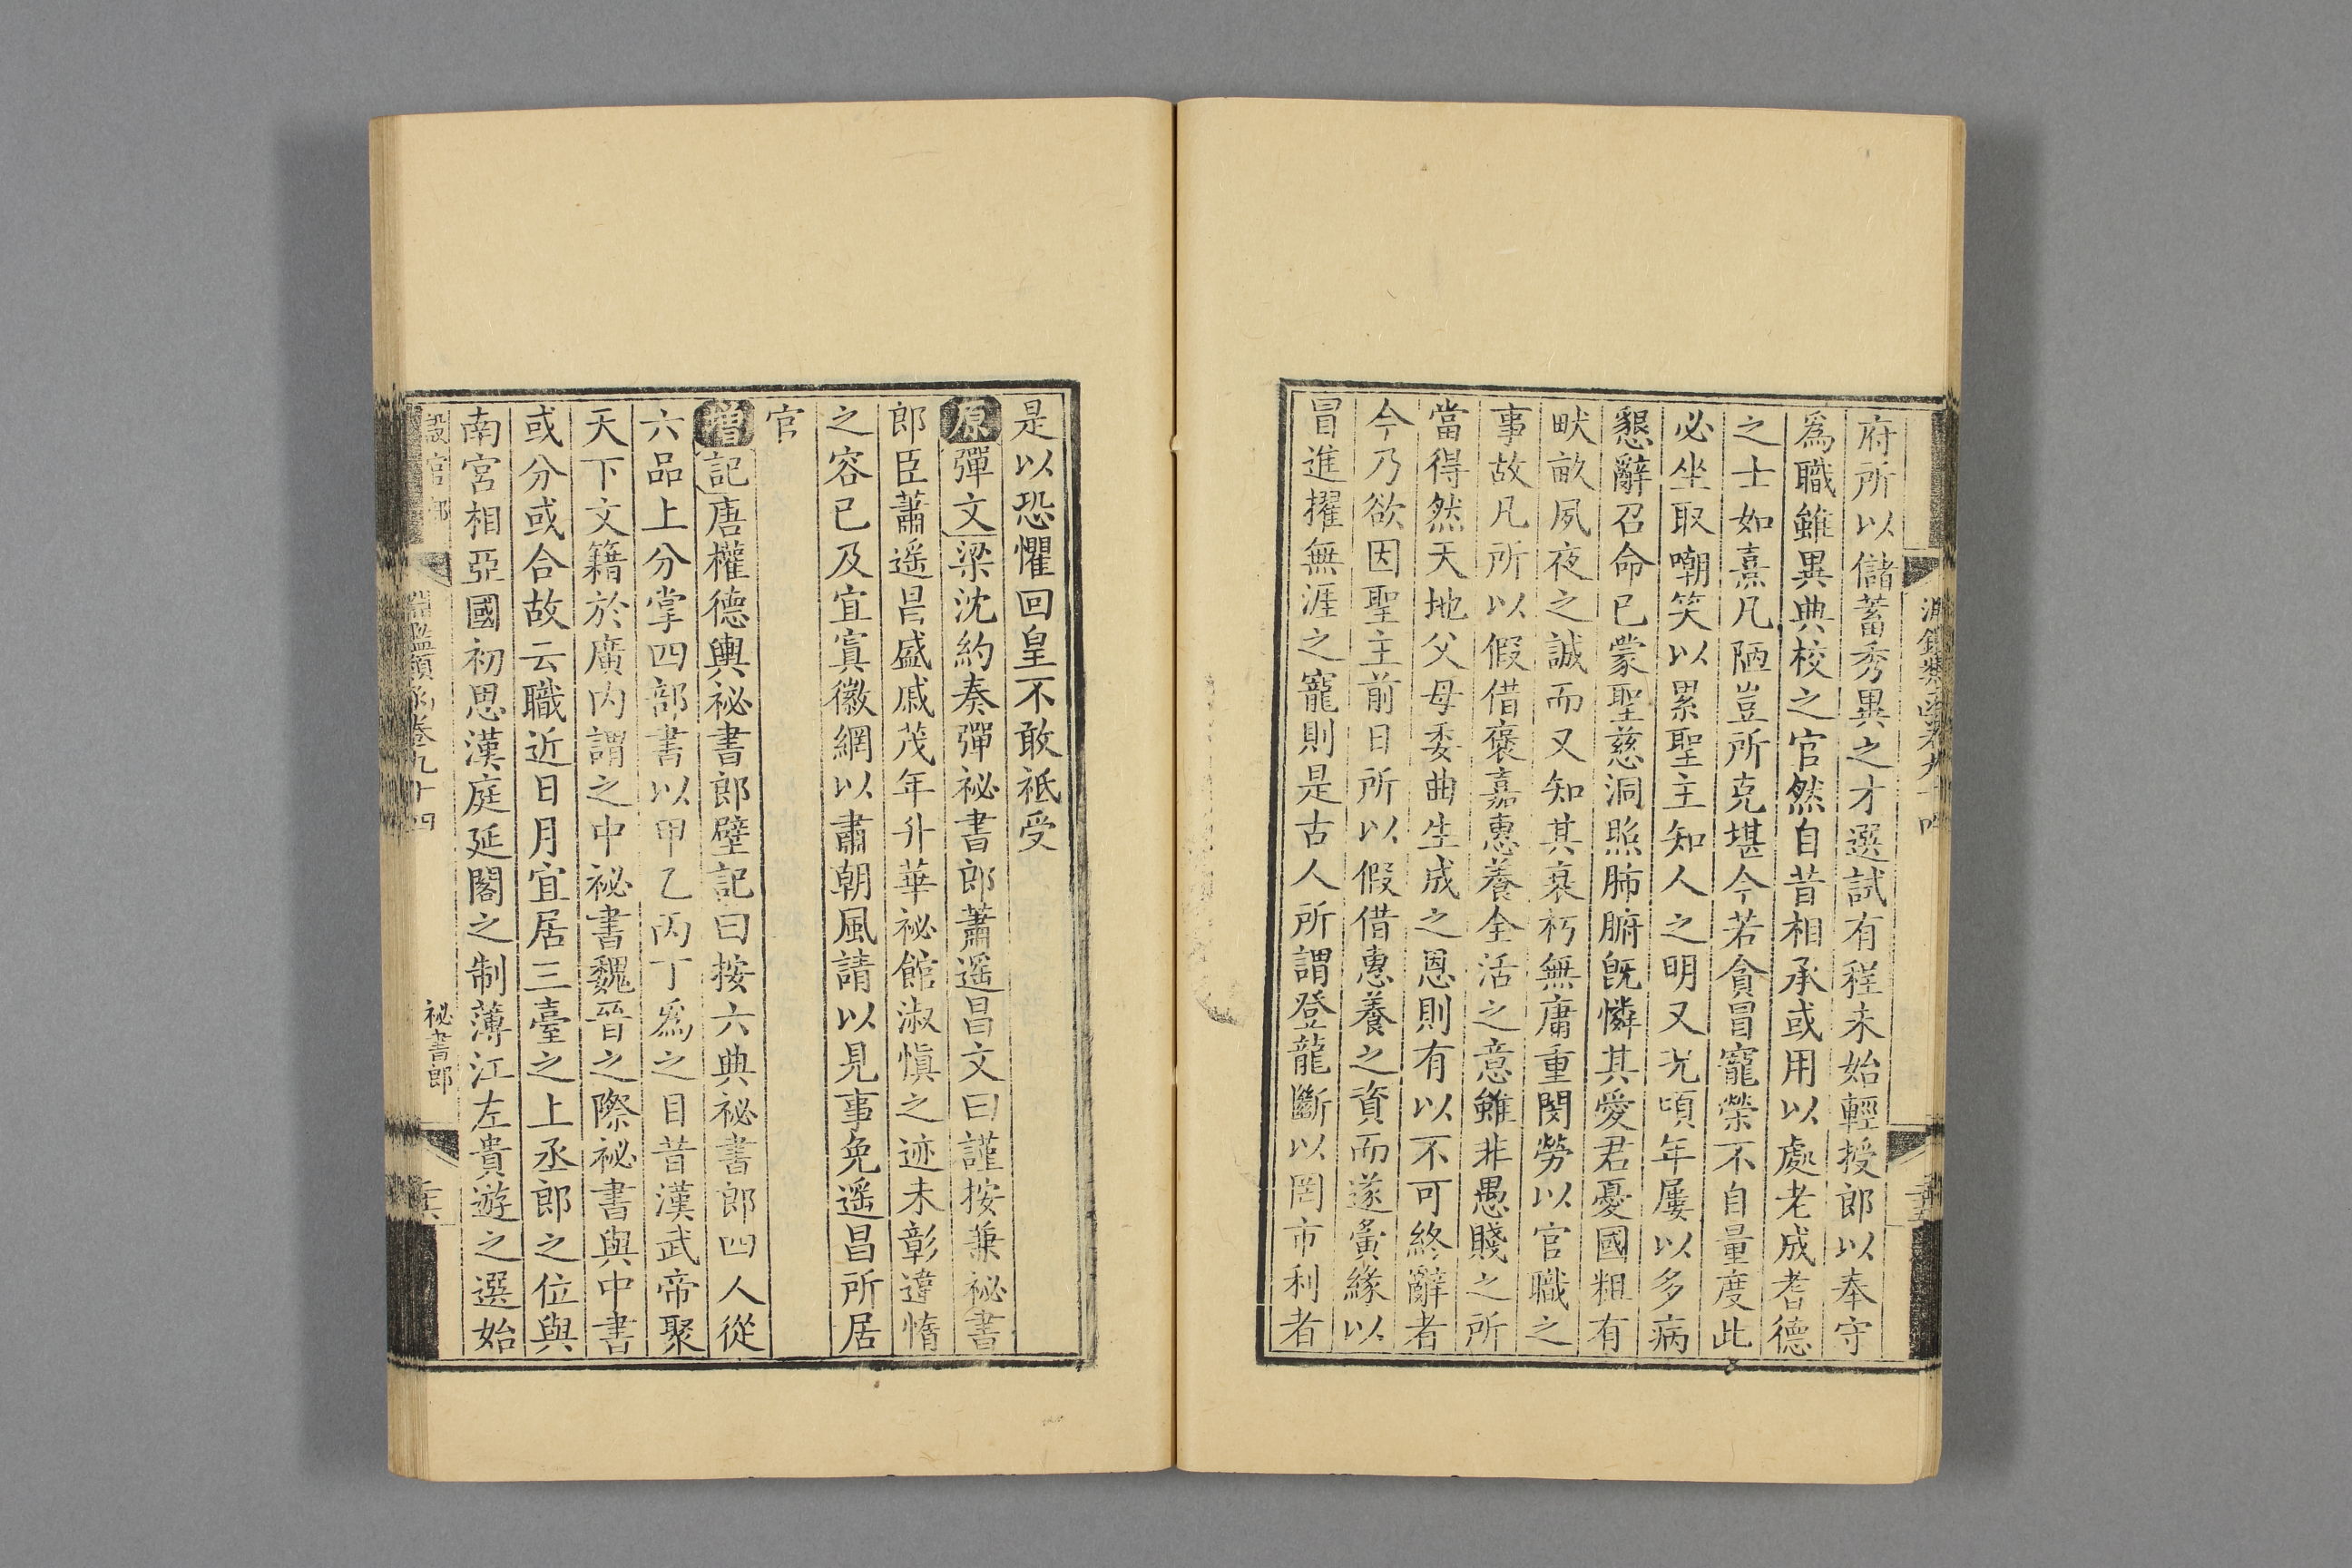 府所以儲蓄秀異之才選試有程未始輕授郎以奉守
爲職雖異典校之官然自昔相承或用以處老成耆德
之士如熹凡陋豈所克堪今若貪冒寵榮不自量度此
必坐取嘲笑以累聖主知人之明又況頃年屢以多病
懇辭召命已蒙聖慈洞照肺腑旣憐其愛君憂國粗有
畎畝夙夜之誠而又知其衰朽無庸重閔勞以官職之
事故凡所以假借褒嘉惠養全活之意雖非愚賤之所
當得然天地父母委曲生成之恩則有以不可終辭者
今乃欲因聖主前日所以假借惠養之資而遂夤緣以
冒進擢無涯之寵則是古人所謂登龍斷以罔市利者
是以恐懼回皇不敢祗受
原彈文梁沈約奏彈祕書郎蕭遥昌文曰謹按兼祕書
郎臣蕭遥昌盛戚茂年升華祕館淑愼之迹未彰違惰
之容已及宜寘徽網以肅朝風請以見事免遥昌所居
官
增記唐權德輿祕書郎壁記曰按六典祕書郎四人從
六品上分掌四部書以甲乙丙丁爲之目昔漢武帝聚
天下文籍於廣内謂之中祕書魏晉之際祕書與中書
或分或合故云職近日月宜居三臺之上丞郎之位與
南宮相亞國初思漢庭延閣之制薄江左貴遊之選始
設官部
卷九十四
祕書郎